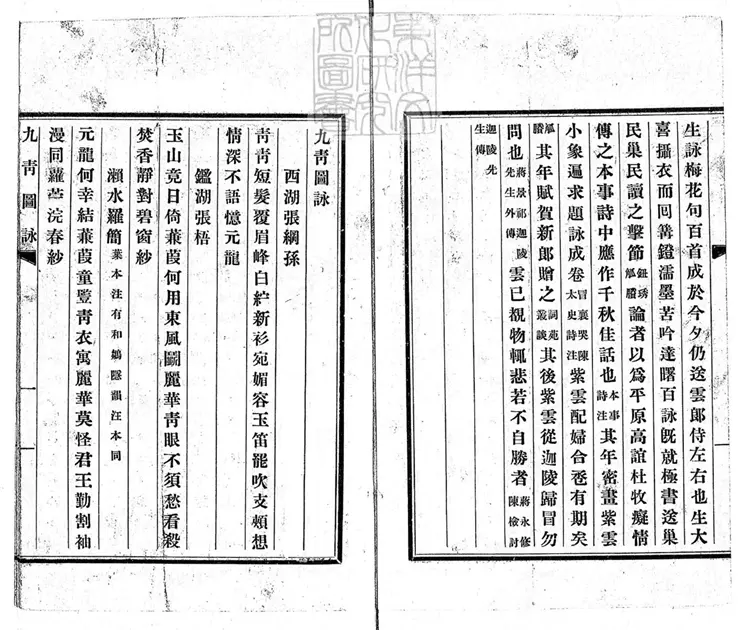 生詠梅花句百首成於今夕仍送雲郎侍左右也生大
喜攝衣而囘篝鐙濡墨苦吟達曙百詠旣就亟書送巢
民巢民讀之擊節鈕琇觚賸論者以爲平原高誼杜牧癡情
傳之本事詩中應作千秋佳話也本事詩注其年密畫紫雲
小象遍求題詠成卷冒襄哭陳太史詩注紫雲配婦合巹有期矣
其年賦賀新郎贈之詞苑叢談其後紫雲從迦陵歸冒勿
問也蔣景祁迦陵先生外傳雲已覩物輒悲若不自勝者蔣永修陳檢討
迦陵先生傳
九靑圖詠
西湖張綱孫
靑靑短髮覆眉峰白紵新衫宛媚容玉笛罷吹支頰想
情深不語憶元龍
鑑湖張梧
玉山竟日倚蒹葭何用東風鬭麗華靑眼不須愁看殺
焚香靜對碧窗紗
瀨水羅簡葉本注有和鵷隊韻汪本同
元龍何幸結蒹葭童豎靑衣寓麗華莫怪君王勤割袖
漫同蘿苧浣春紗
九靑圖詠